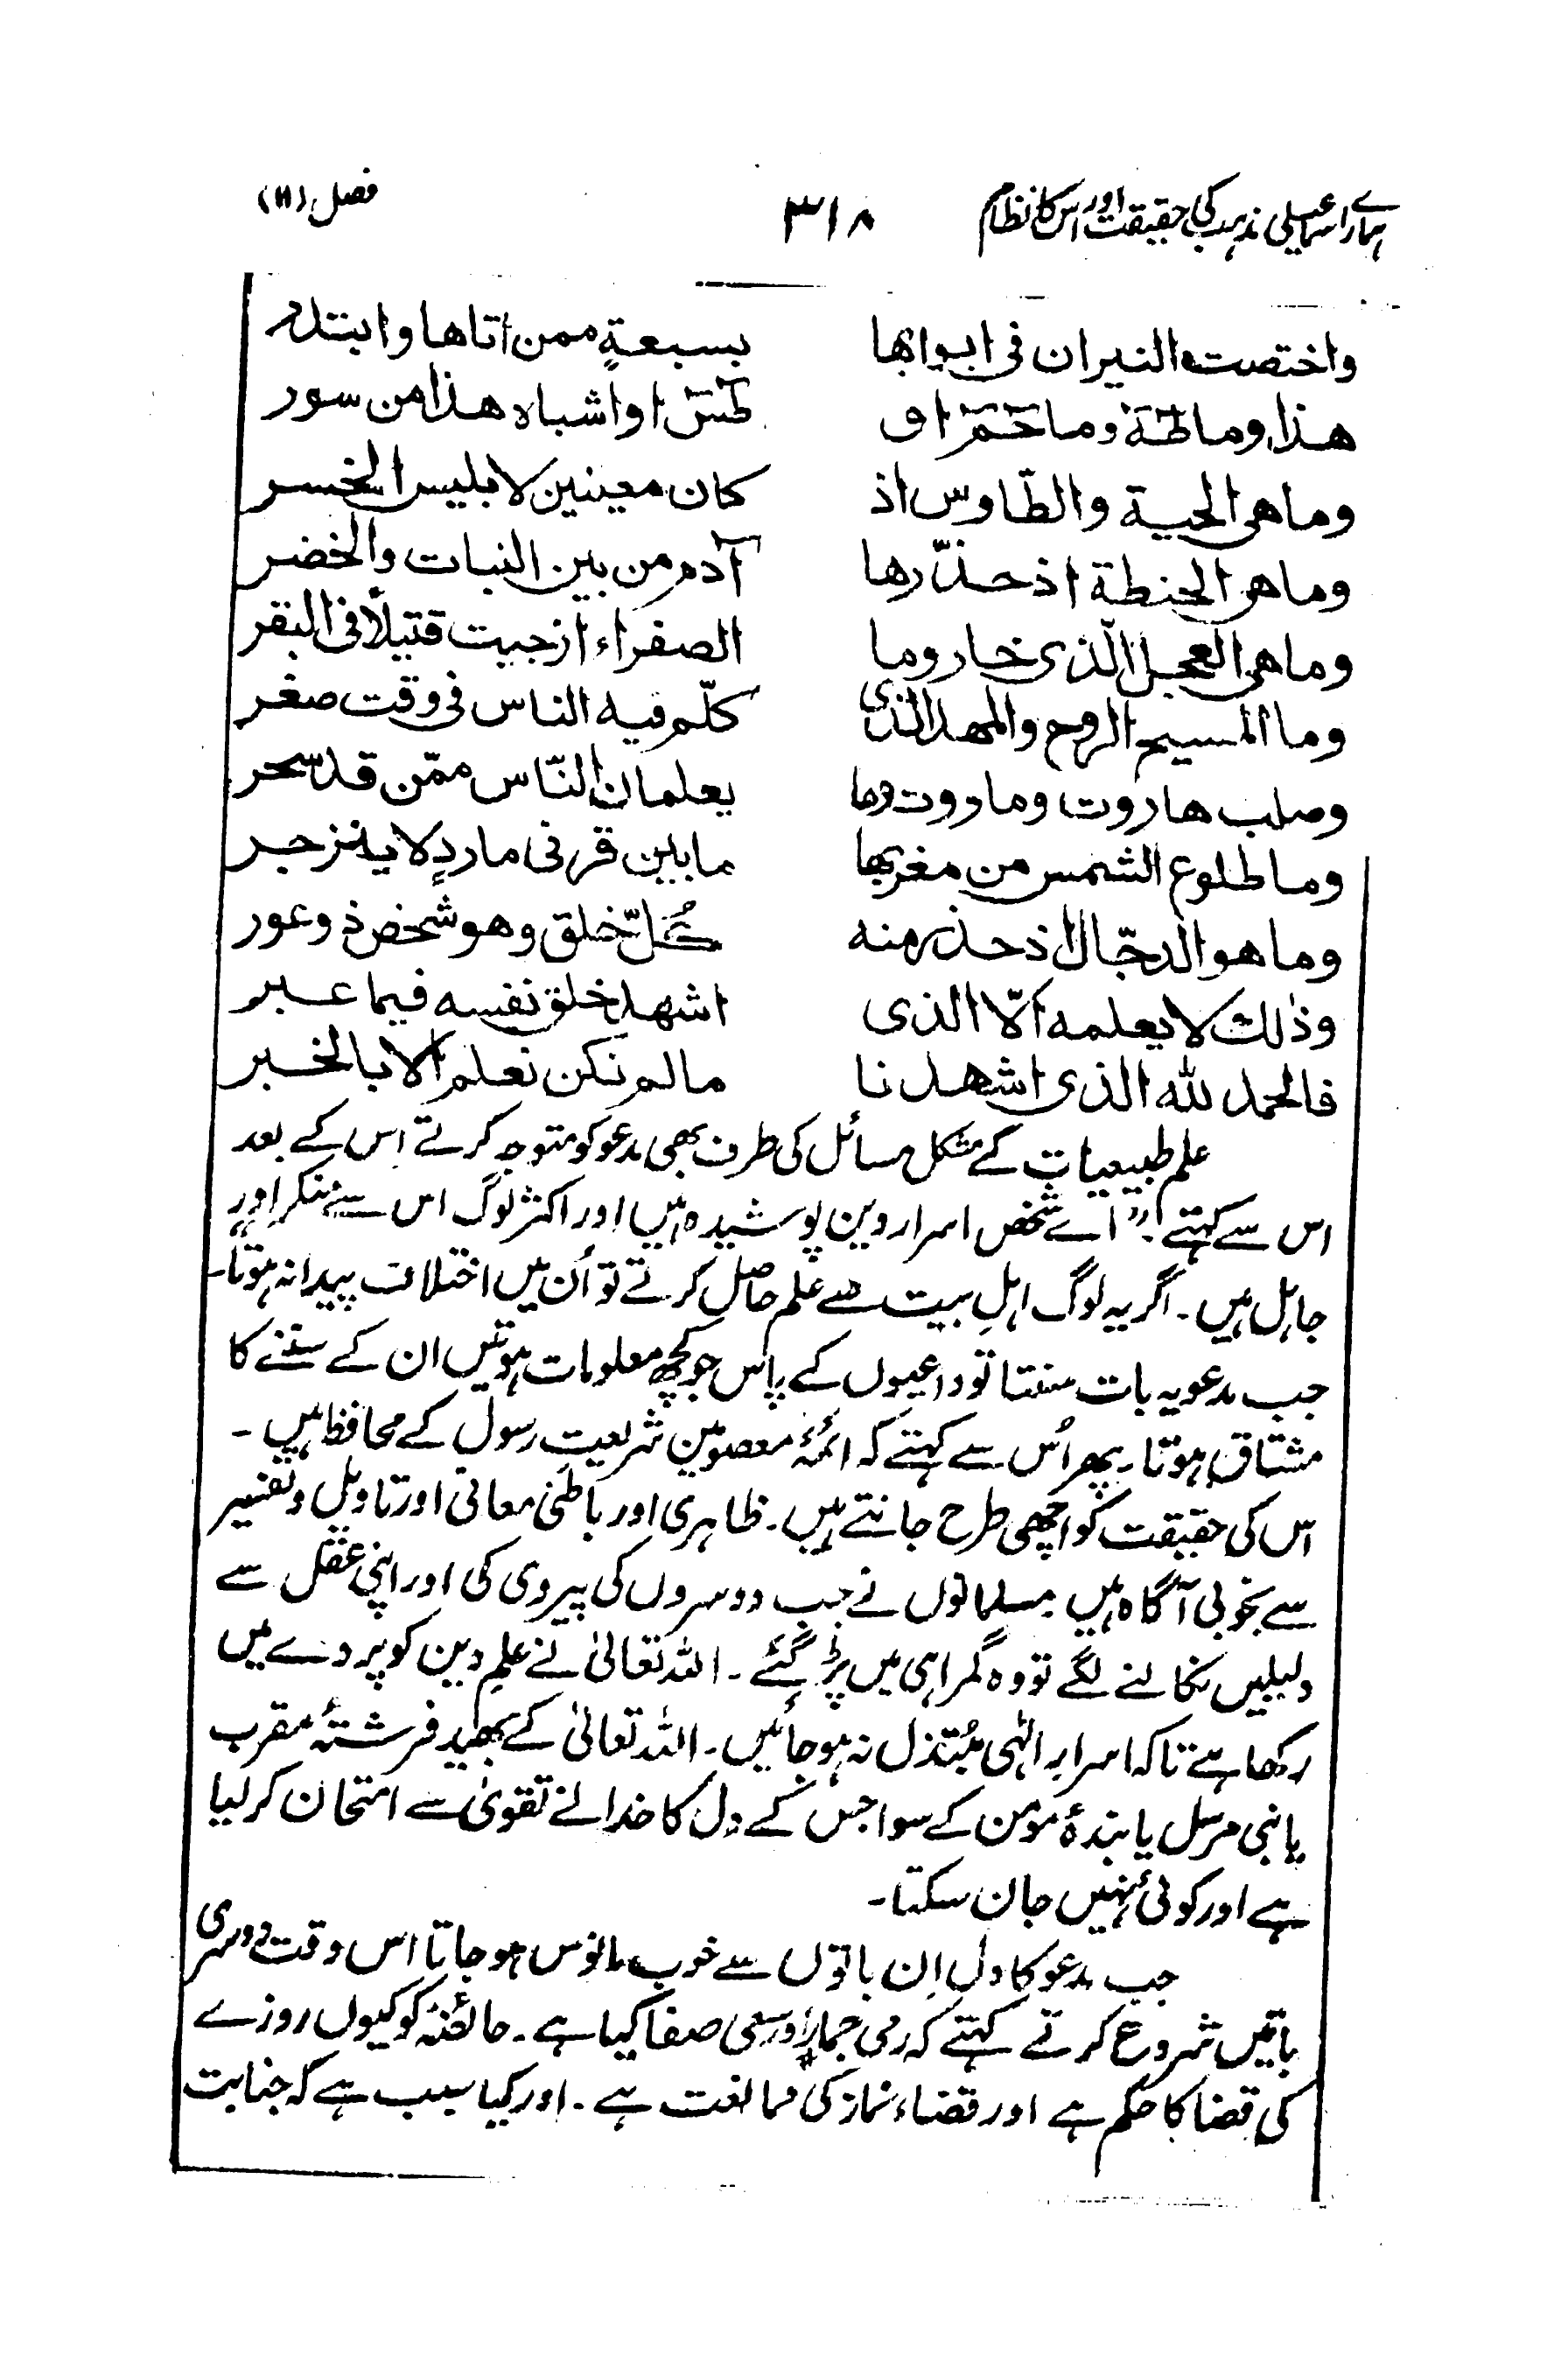 ہمارے اسماعیلی مذہب کی حقیقت اور اس کا نظام ۳۱۸ فصل (۱۱)
واختصت النیران فی ابوابھا بسبعةٍ ممن أتاھا وابتدر
ھذا وما طٰهٰ وما حٰمٓ او طٰسٓ او اشباہ ھذا من سور
وما ھی الحیة والطّاوس اذ کان معینین لابلیس الخسر
وما ھی الحنطة اذ حذّرھا آدم من بین النبات والخضر
وما ھی العجل الّذی خار وما الصفراء اذ جیت قتیلاً فی البقر
وما المسیح الروح والمھد الذی کلّم فیه الناس فی وقت صغر
وصلب ھاروت وماروت وما یعلمان النّاس ممّن قد سحر
وما طلوع الشمس من مغربھا ما بین قرنی ماردٍ لا ینزجر
وما ھو الدجّال اذ حذر منه کُلّ خلق وھو شخص ذو عور
وذٰلك لا یعلمه الّا الذی اشھد خلق نفسه فیما عبر
فالحمد للّٰه الذی اشھدنا ما لم نکن نعلم الا بالخبر
علم طبیعیات کے مشکل مسائل کی طرف بھی مدعو کو متوجہ کرتے اس کے بعد
اس سے کہتے :۔” اے شخص اسرار دین پوشیدہ ہیں اور اکثر لوگ اس سے منکر اور
جاہل ہیں ۔ اگر یہ لوگ اہلِ بیت سے علم حاصل کرتے تو اُن میں اختلاف پیدا نہ ہوتا۔
جب مدعو یہ بات سنتا تو داعیوں کے پاس جو کچھ معلومات ہوتیں ان کے سننے کا
مشتاق ہوتا ۔ پھر اُس سے کہتے کہ ائمۂ معصومین شریعتِ رسول کے محافظ ہیں ۔
اس کی حقیقت کو اچھی طرح جانتے ہیں ۔ ظاہری اور باطنی معانی اور تاویل و تفسیر
سے بخوبی آگاہ ہیں ۔ مسلمانوں نے جب دوسروں کی پیروی کی اور اپنی عقل سے
دلیلیں نکالنے لگے تو وہ گمراہی میں پڑ گئے ۔ اللہ تعالیٰ نے علمِ دین کو پردے میں
رکھا ہے تاکہ اسرارِ الٰہی مُبتذل نہ ہو جائیں ۔ اللہ تعالیٰ کے بھید فرشتۂ مقرب
یا نبی مرسل یا بندۂ مومن کے سوا جس کے دِل کا خدا نے تقویٰ سے امتحان کر لیا
ہے اور کوئی نہیں جان سکتا ۔
جب مدعو کا دل اِن باتوں سے خوب مانوس ہو جاتا اس وقت دوسری
باتیں شروع کرتے کہتے کہ رمی جمار اور سعی صفا کیا ہے ۔ حائضہ کو کیوں روزے
کی قضا کا حکم ہے اور قضاء نماز کی ممانعت ہے ۔ اور کیا سبب ہے کہ جنابت